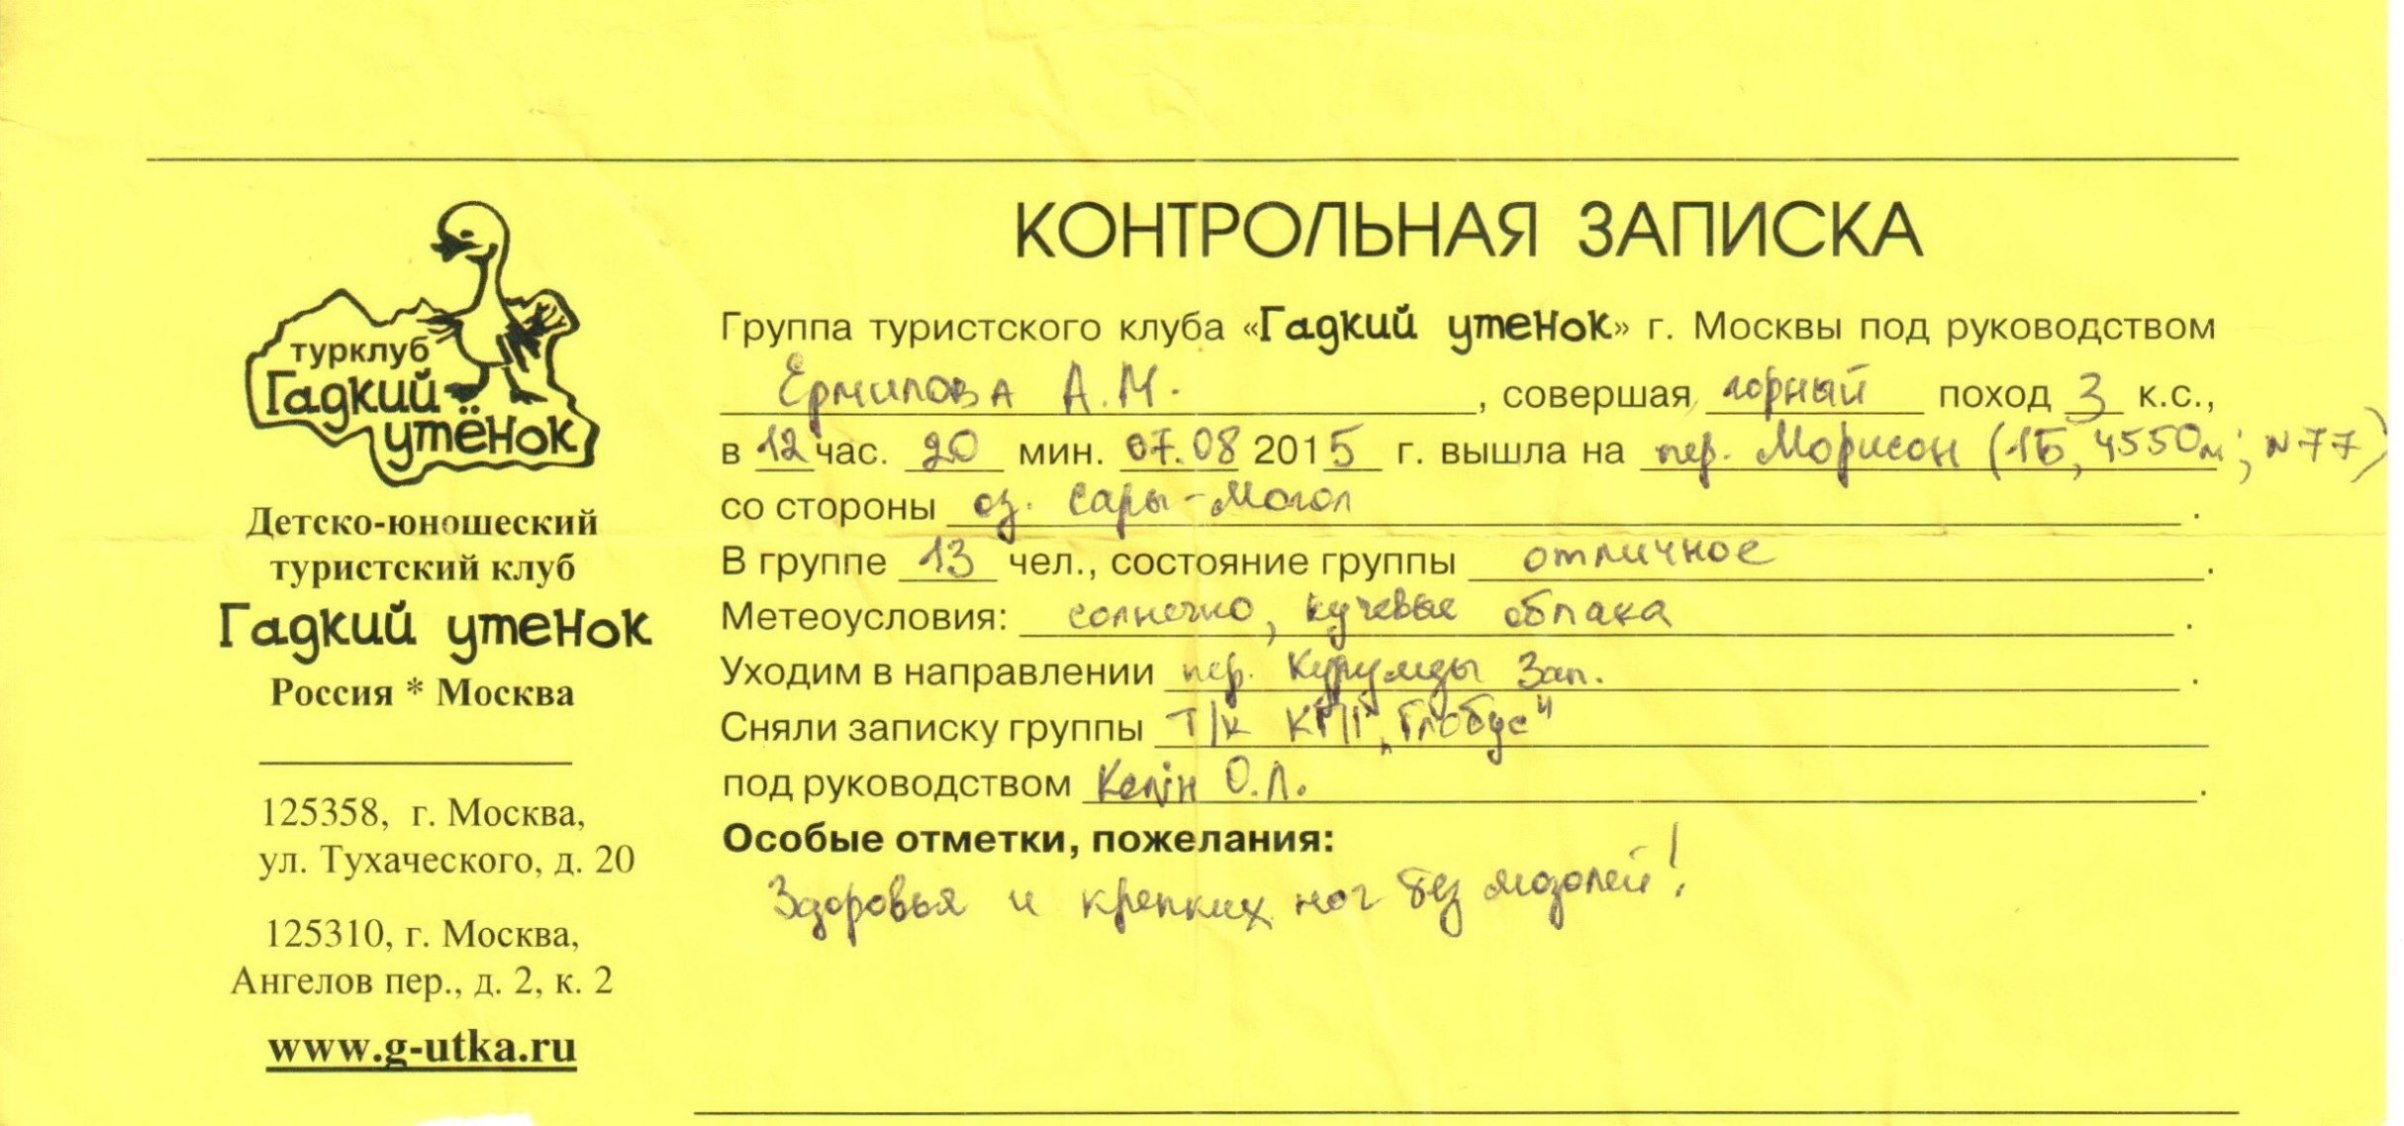 турклуб
Гадкий
утёнок
Детско-юношеский
туристский клуб
Гадкий утенок
Россия * Москва
125358, г. Москва,
ул. Тухаческого, д. 20
125310, г. Москва,
Ангелов пер., д. 2, к. 2
www.g-utka.ru
КОНТРОЛЬНАЯ ЗАПИСКА
Группа туристского клуба «Гадкий утенок» г. Москвы под руководством
Ермилова А.М. , совершая горный поход 3 к.с.,
в 12 час. 20 мин. 07.08 2015 г. вышла на пер. Морисон (1Б, 4550м; №77)
со стороны оз. Сары-Могол .
В группе 13 чел., состояние группы отличное .
Метеоусловия: солнечно, кучевые облака .
Уходим в направлении пер. Курумды Зап. .
Сняли записку группы Т/к КПІ „Глобус"
под руководством Келін О.Л. .
Особые отметки, пожелания:
Здоровья и крепких ног без мозолей!